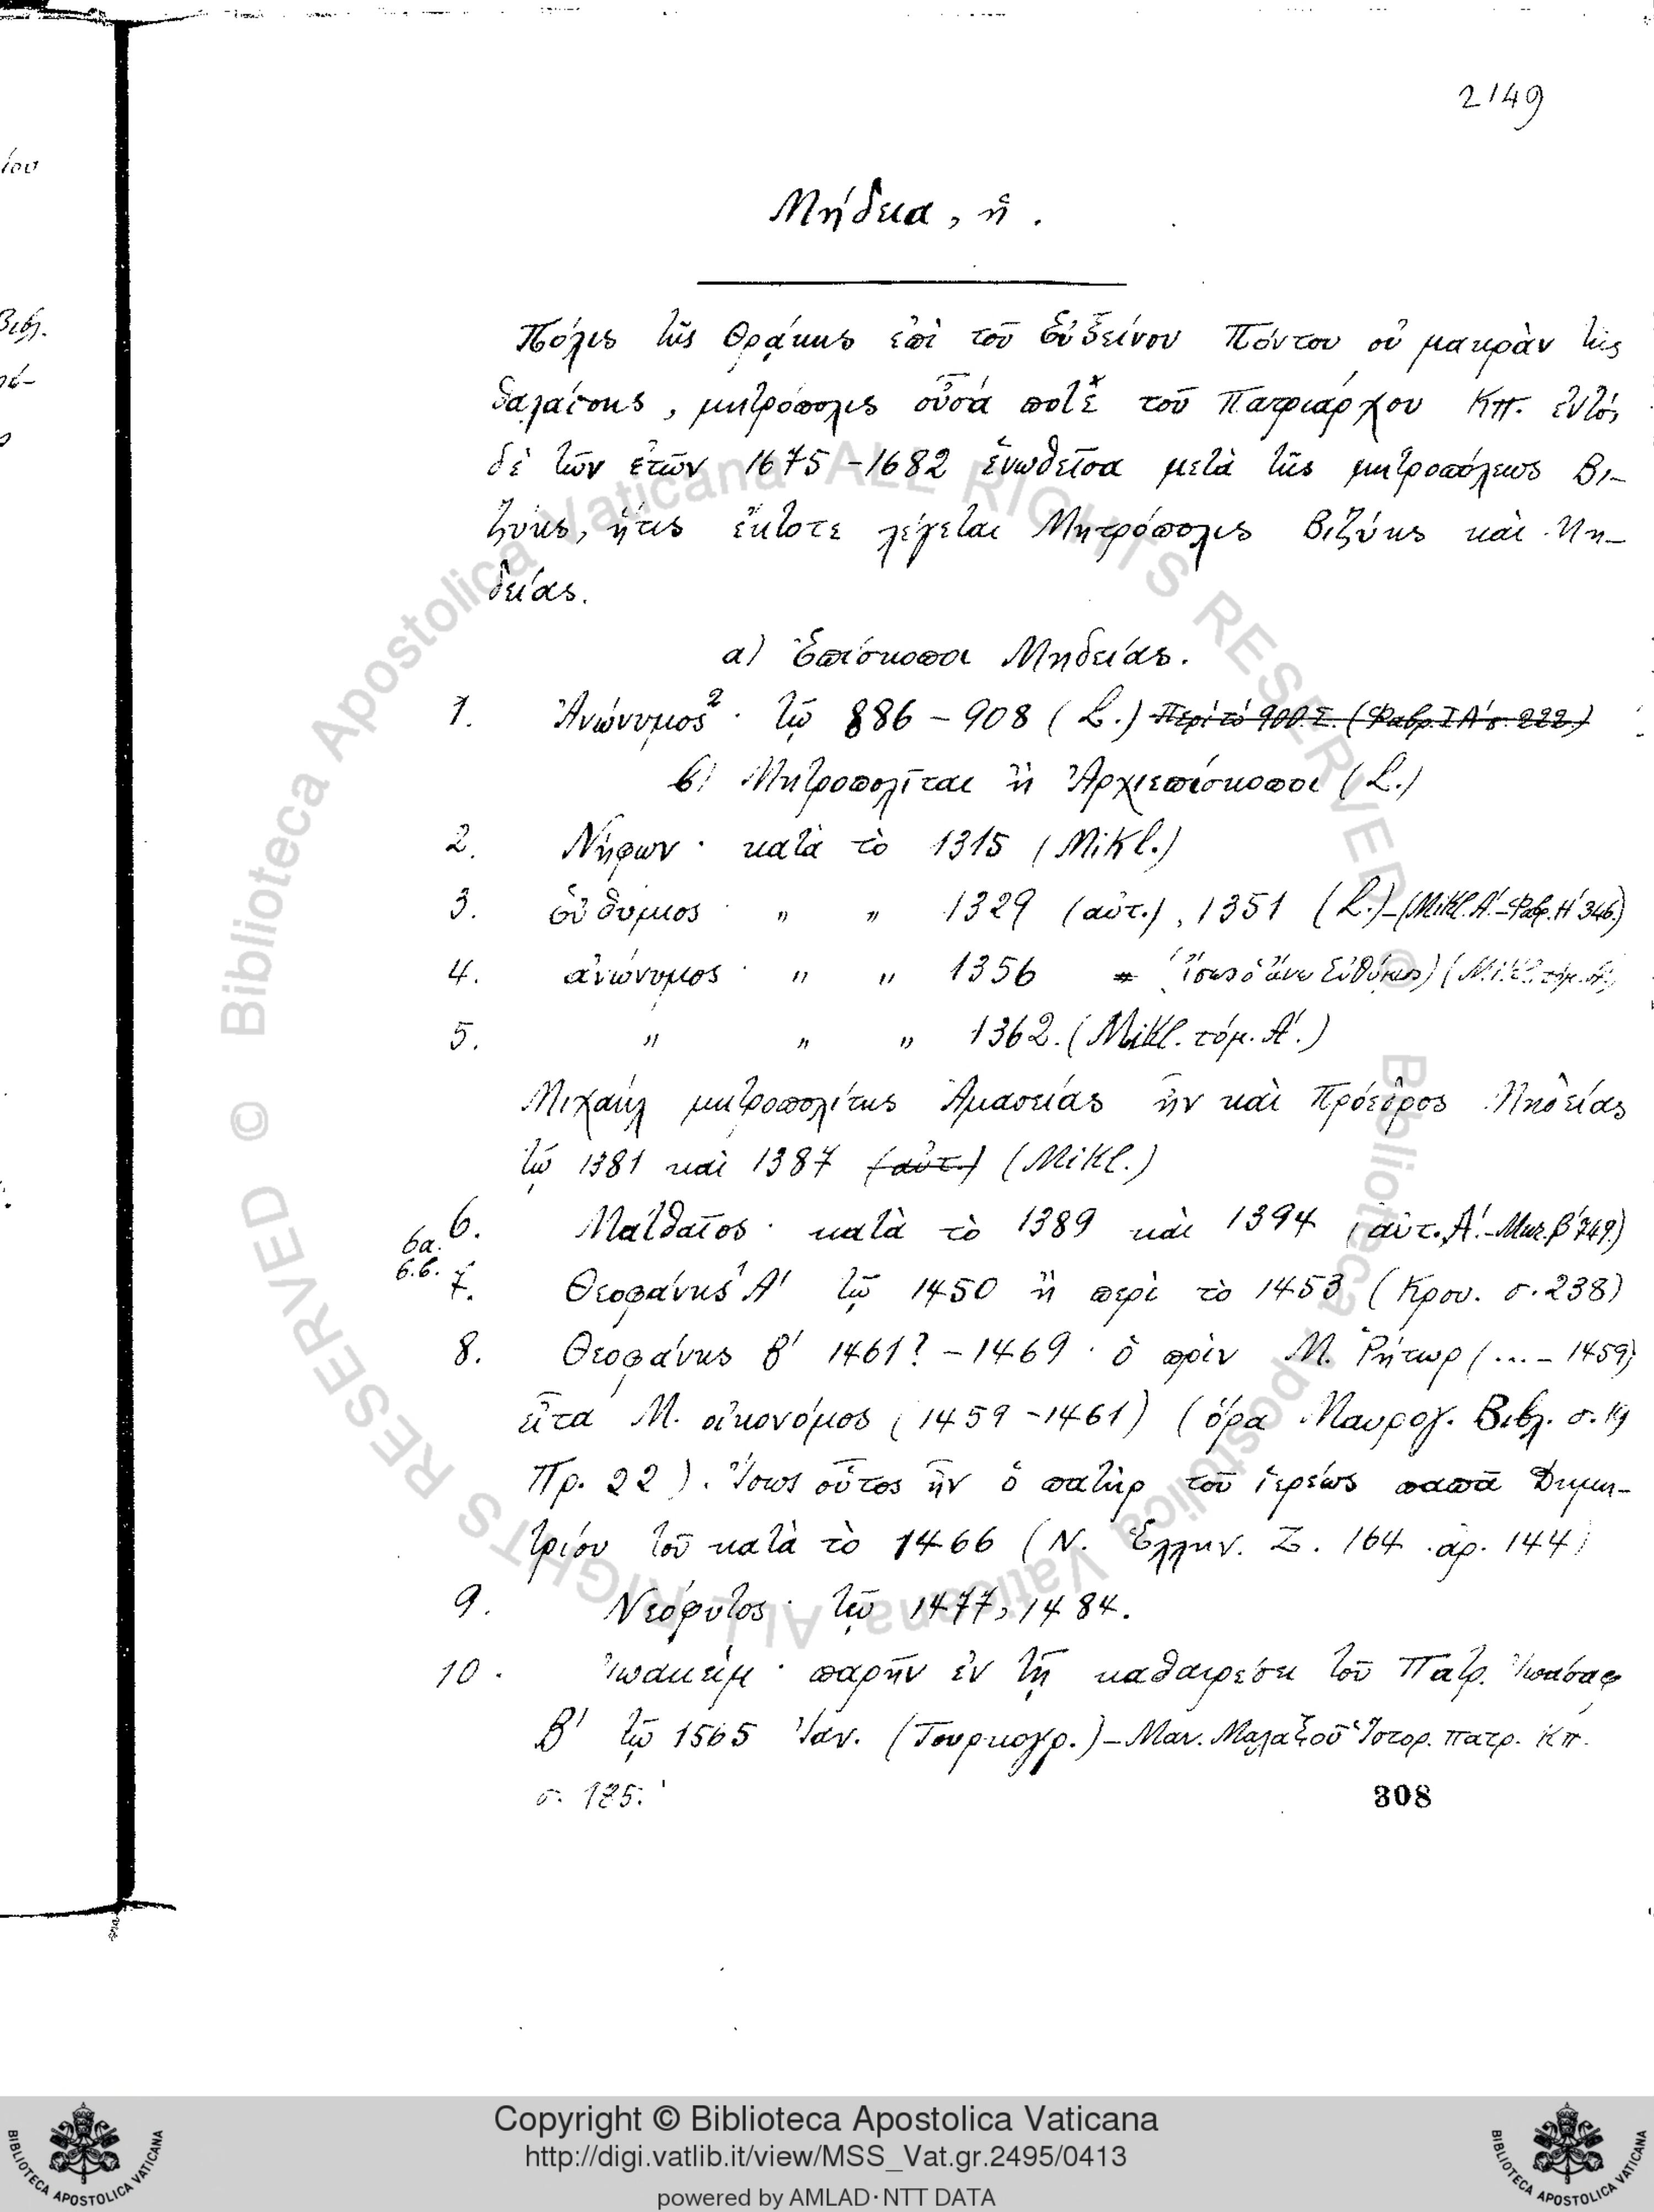 2149
Μήδεια, ἡ.
Πόλις τῆς Θρᾴκης ἐπὶ τοῦ Εὐξείνου Πόντου οὐ μακρὰν τῆς
θαλάσσης, μητρόπολις οὖσά ποτε* τοῦ Πατριάρχου Κπ. ἐντὸς
δὲ τῶν ἐτῶν 1675-1682 ἑνωθεῖσα μετὰ τῆς μητροπόλεως Βι-
ζύης, ἥτις ἔκτοτε λέγεται Μητρόπολις Βιζύης καὶ Μη-
δείας.
α) Ἐπίσκοποι Μηδείας.
1. Ἀνώνυμος² · τῷ 886-908 (L.) Περὶ τὸ 900 Σ. (Φαβρ. ΙΑ' σ. 222)
β) Μητροπολῖται ἢ Ἀρχιεπίσκοποι (L.)
2. Νήφων · κατὰ τὸ 1315 (Mikl.)
3. Εὐθύμιος · " " 1329 (αὐτ.), 1351 (L.)-(Mikl. Α'.-Φαβ. Η' 346.)
4. ἀνώνυμος · " " 1356 (Ἴσως ὁ ἄνω Εὐθύμιος) (Mikl. τόμ. Α'.)
5. " " " 1362. (Mikl. τόμ. Α'.)
Μιχαὴλ μητροπολίτης Ἀμασείας ἦν καὶ Πρόεδρος Μηδείας
τῷ 1381 καὶ 1387 (αὐτ.) (Mikl.)
6. Ματθαῖος · κατὰ τὸ 1389 καὶ 1394 (αὐτ. Α'.-Μικ. β' 749.)
6α.
6.β.
7. Θεοφάνης¹ Α' τῷ 1450 ἢ περὶ τὸ 1453 (Κρου. σ. 238)
8. Θεοφάνης Β' 1461? -1469 · ὁ πρὶν Μ. Ῥήτωρ (...-1459)
εἶτα Μ. οἰκονόμος (1459-1461) (ὅρα Μαυρογ. Βιβλ. σ. 19
Πρ. 22). Ἴσως οὗτος ἦν ὁ πατὴρ τοῦ ἱερέως παπᾶ Δημη-
τρίου τοῦ κατὰ τὸ 1466 (Ν. Ἑλλην. Ζ. 164 ἀρ. 144)
9. Νεόφυτος · τῷ 1477, 1484.
10. Ἰωακείμ · παρῆν ἐν τῇ καθαιρέσει τοῦ Πατρ. Ἰωάσαφ
Β' τῷ 1565 Ἰαν. (Τουρκογρ.)-Μαν. Μαλαξοῦ Ἱστορ. πατρ. Κπ.
σ. 185.
308
Biblioteca Apostolica Vaticana ALL RIGHTS RESERVED ©
Biblioteca Apostolica Vaticana ALL RIGHTS RESERVED ©
Copyright © Biblioteca Apostolica Vaticana
http://digi.vatlib.it/view/MSS_Vat.gr.2495/0413
powered by AMLAD·NTT DATA
BIBLIOTECA APOSTOLICA VATICANA
BIBLIOTECA APOSTOLICA VATICANA